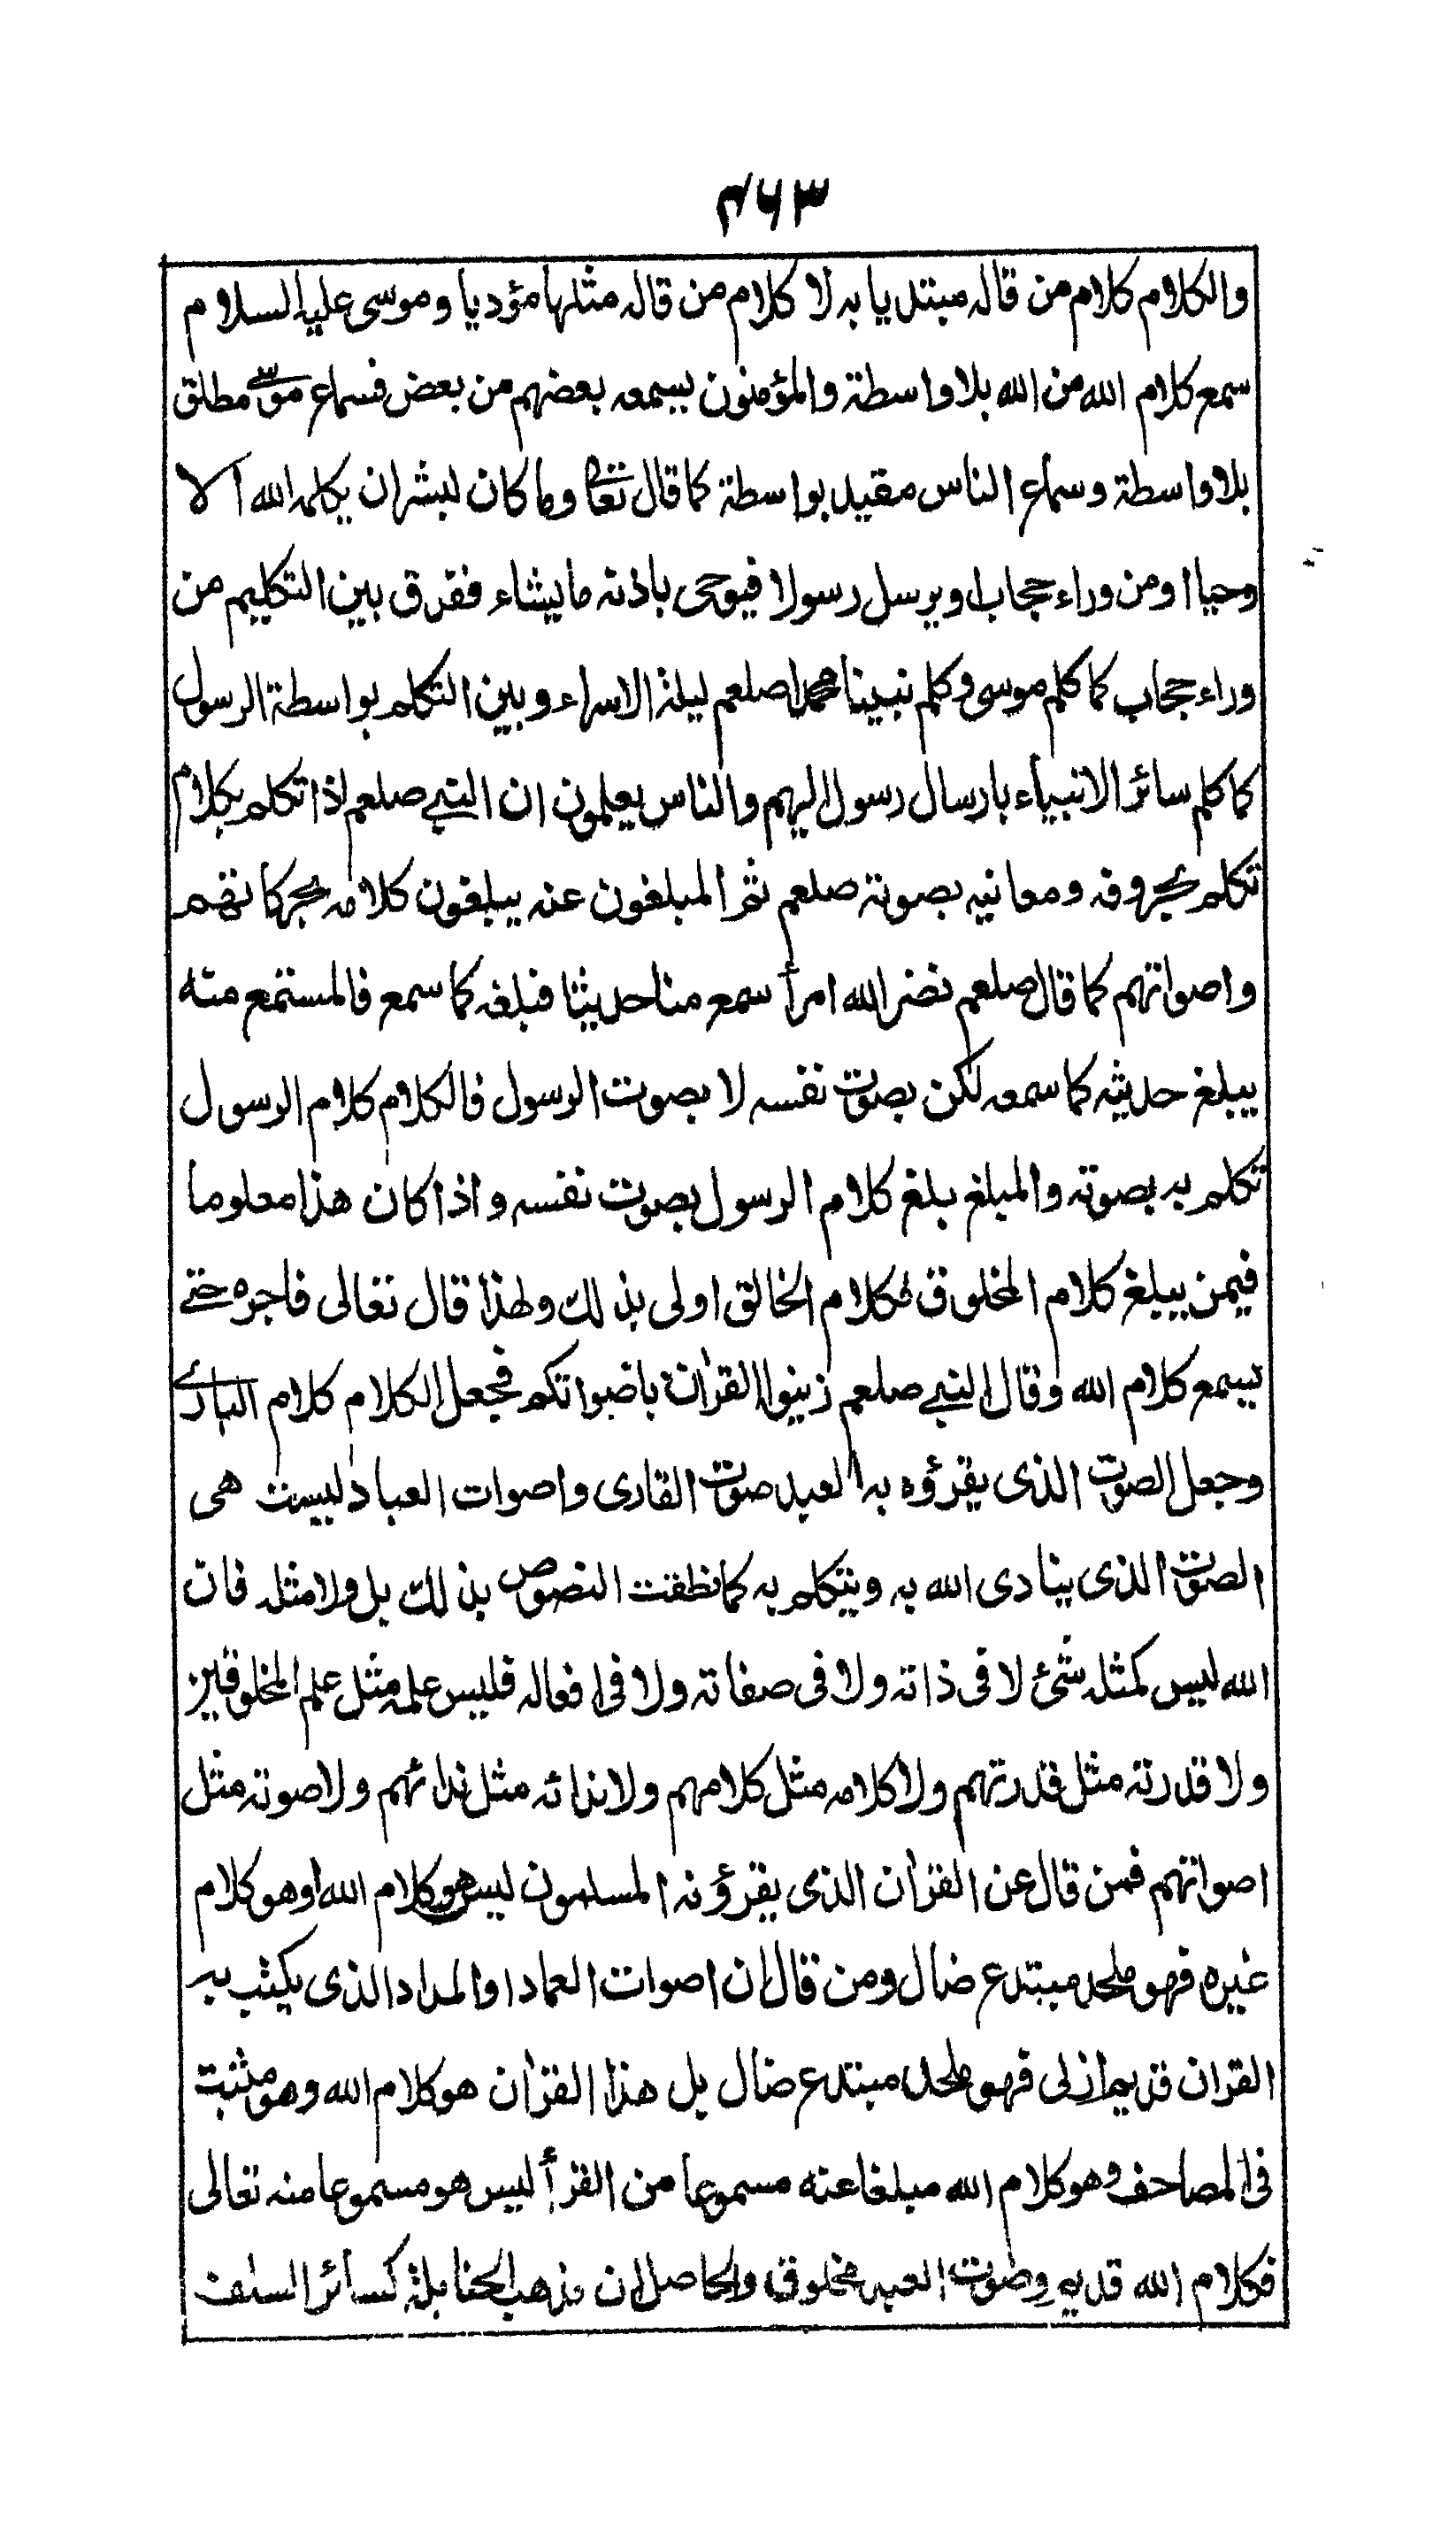 ٤٦٣
والكلام كلام من قاله مبتديا به لا كلام من قاله مثلها مؤديا وموسى عليه السلام
سمع كلام الله من الله بلا واسطة والمؤمنون يسمعه بعضهم من بعض فسماع موسى مطلق
بلا واسطة وسماع الناس مقيد بواسطة كما قال تعالى وما كان لبشر ان يكلمه الله الا
وحيا او من وراء حجاب او يرسل رسولا فيوحى باذنه ما يشاء ففرق بين التكليم من
وراء حجاب كما كلم موسى وكلم نبينا محمدا صلعم ليلة الاسراء وبين التكلم بواسطة الرسول
كما كلم سائر الانبياء بارسال رسول اليهم والناس يعلمون ان النبي صلعم اذا تكلم بكلام
تكلم بحروفه ومعانيه بصوته صلعم ثم المبلغون عنه يبلغون كلامه بحركاتهم
واصواتهم كما قال صلعم نضر الله امرأ سمع منا حديثا فبلغه كما سمع فالمستمع منه
يبلغ حديثه كما سمعه لكن بصوت نفسه لا بصوت الرسول فالكلام كلام الرسول
تكلم به بصوته والمبلغ بلغ كلام الرسول بصوت نفسه واذا كان هذا معلوما
فيمن يبلغ كلام المخلوق فكلام الخالق اولى بذلك ولهذا قال تعالى فاجره حتى
يسمع كلام الله وقال النبي صلعم زينوا القرآن باصواتكم فجعل الكلام كلام البارى
وجعل الصوت الذى يقرؤه به العبد صوت القارى واصوات العباد ليست هى
الصوت الذى ينادى الله به ويتكلم به كما نطقت النصوص بذلك بل ولا مثله فان
الله ليس كمثله شئ لا فى ذاته ولا فى صفاته ولا فى افعاله فليس علمه مثل علم المخلوقين
ولا قدرته مثل قدرتهم ولا كلامه مثل كلامهم ولا ندائه مثل ندائهم ولا صوته مثل
اصواتهم فمن قال عن القرآن الذى يقرؤنه المسلمون ليس هو كلام الله او هو كلام
غيره فهو ملحد مبتدع ضال ومن قال ان اصوات العباد او المداد الذى يكتب به
القرآن قديم ازلى فهو ملحد مبتدع ضال بل هذا القرآن هو كلام الله وهو مثبت
فى المصاحف وهو كلام الله مبلغا عنه مسموعا من القرأ ليس هو مسموعا منه تعالى
فكلام الله قديم وصوت العبد مخلوق والحاصل ان مذهب الحنابلة كسائر السلف